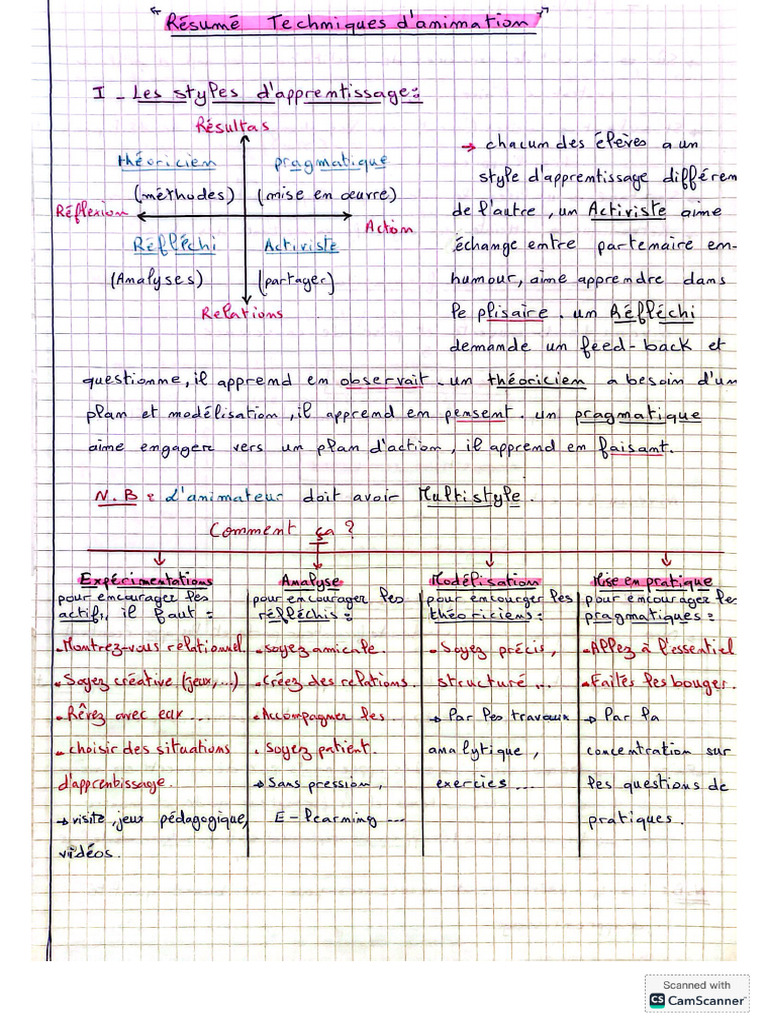 "Résumé Techniques d'animation"
I - Les styles d'apprentissage:
Résultas
théoricien pragmatique
(méthodes) (mise en œuvre)
Réflexion
Action
Réfléchi Activiste
(Analyses) (partager)
Relations
→ chacum des élèves a un
style d'apprentissage différem
de l'autre, un Activiste aime
échange entre partemaire em-
humour, aime appremdre dans
le plisaire. un Réfléchi
demamde un feed-back et
questionme, il appremd em observait. un théoricien a besoim d'um
plam et modélisation, il apprend em pemsent. un pragmatique
aime emgager vers um plam d'action, il apprend em faisant.
N.B : L'animateur doit avoir Multistyle.
Comment ça ?
Expérimentations
pour encourager les
actifs, il faut :
- Montrez-vous relationnel.
- Soyez créative (jeux,...)
- Rêvez avec eux ...
- choisir des situations
d'apprenbissage.
→ visite, jeux pédagogique,
vidéos.
Analyse
pour encourager les
réfléchis :
- soyez amicale.
- Créez des relations.
- Accompagner les.
- Soyez patient.
→ Sans pression,
E-learming ...
Modélisation
pour encourger les
théoriciens :
- Soyez précis,
structuré ...
→ Par les travaux
analytique,
exercies ...
Mise en pratique
pour encourager les
pragmatiques :
- Allez à l'essentiel
- Faites les bouger.
→ Par la
concentration sur
les questions de
pratiques.
Scanned with
CS CamScanner